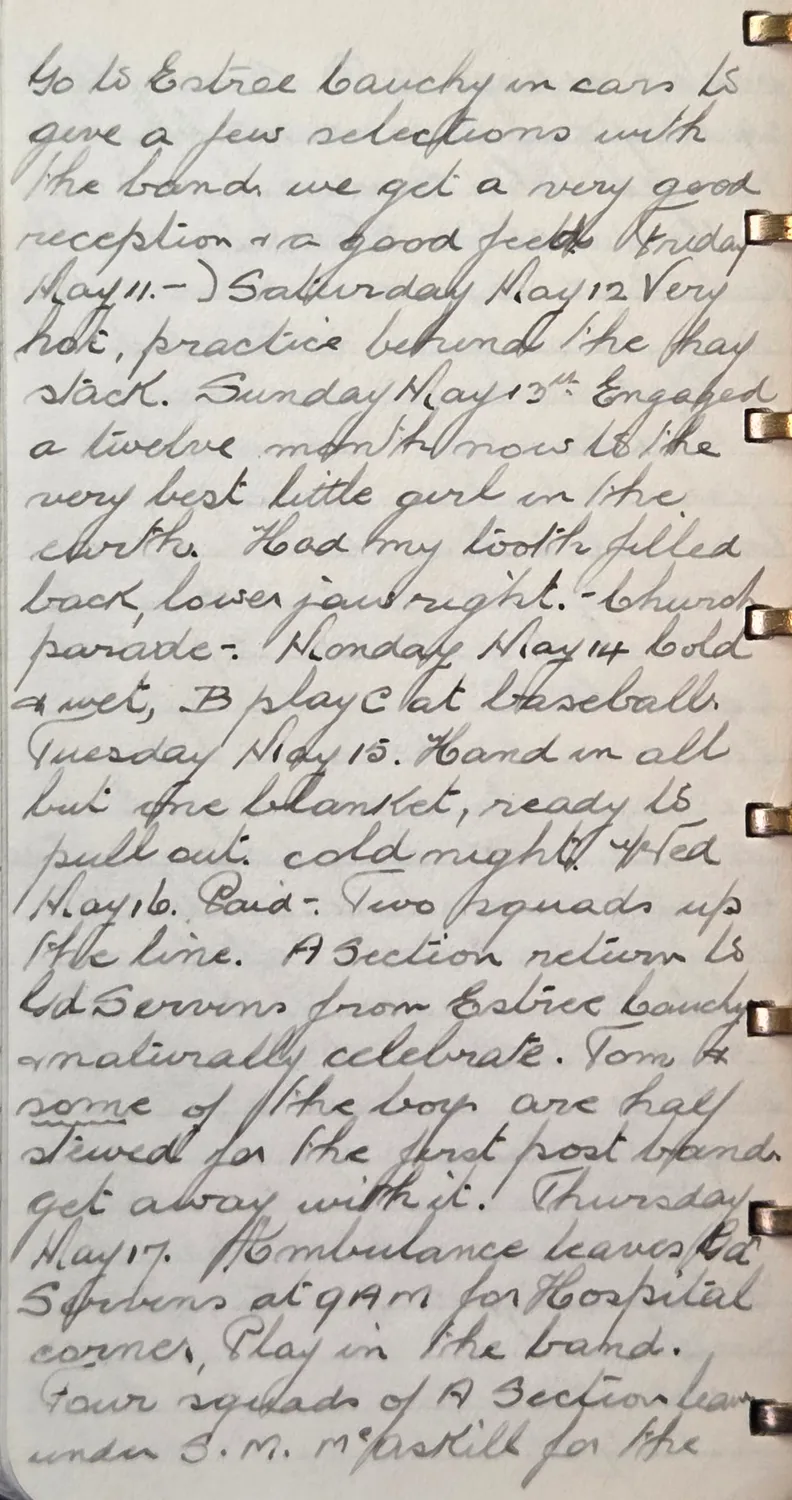 Go to Estree Cauchy in cars to
give a few selections with
the band. we get a very good
reception & a good feed. Friday
May 11.-) Saturday May 12 Very
hot, practice behind the hay
stack. Sunday May 13th Engaged
a twelve month now to the
very best little girl in the
earth. Had my tooth filled
back, lower jaw right. - Church
parade-. Monday May 14 Cold
& wet, B play C at baseball.
Tuesday May 15. Hand in all
but one blanket, ready to
pull out. cold night. Wed
May 16. Paid-. Two squads up
the line. A Section return to
Gd Servins from Estree Cauchy
& naturally celebrate. Tom &
some of the boys are half
stewed for the first post band.
get away with it. Thursday
May 17. Ambulance leaves Gd
Servins at 9 AM for Hospital
corner, Play in the band.
Four squads of A Section leave
under S.M. McAskill for the